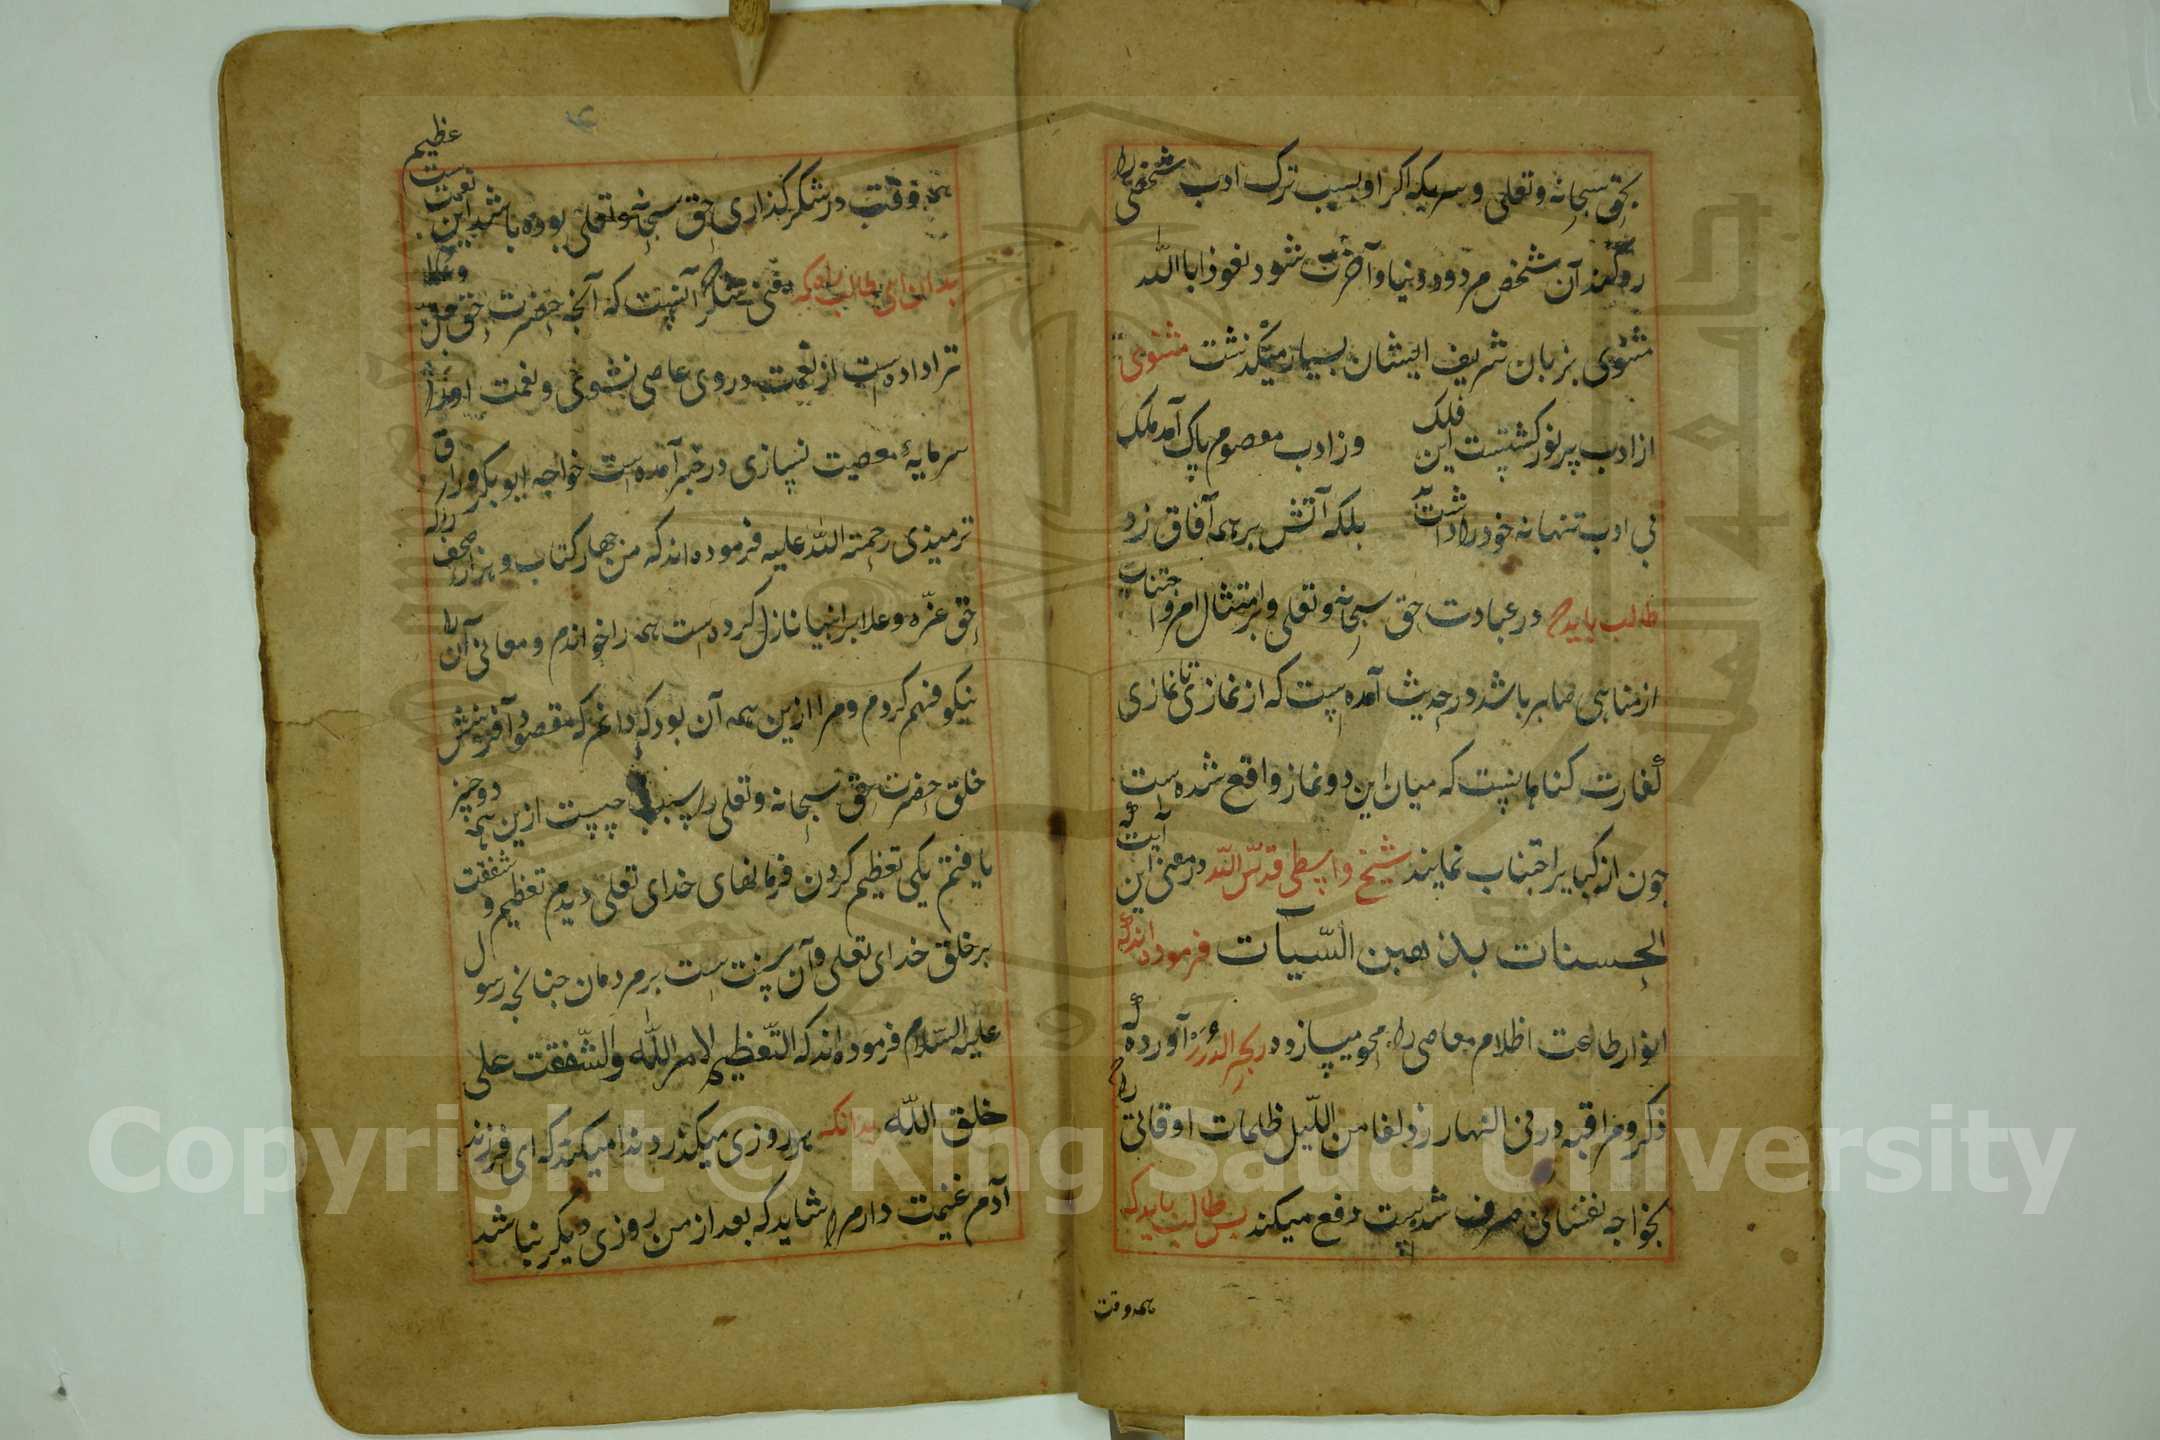 بحق سبحانه وتعلی و سریکه اکر او بسبب ترک ادب شخصی را
رد کند آن شخص مردود دنیا و آخرت شود نعوذ اباالله
مثنوی بزبان شریف ایشان بسیار میکذشت مثنوی
از ادب پر نور کشتست این فلک وز ادب معصوم پاک آمد ملک
بی ادب تنها نه خود را داشت بد بلکه آتش بر همه آفاق زد
طالب باید در عبادت حق سبحانه وتعلی و بر امتثال امر و اجتناب
از مناهی صابر باشد در حدیث آمده است که از نمازی تا نمازی
کفارت کناهانیست که میان این دو نماز واقع شده است
چون از کبایر اجتناب نمایند شیخ واسطی قدس الله در معنی این آیت که
الحسنات یذهبن السیات فرموده اند که
انوار طاعت اظلام معاصی را محو میسازد و در بحر الدرر آورده که
ذکر و مراقبه در فی النهار زدلفا من اللیل ظلمات اوقاتی را که
بخواجه نفسانی صرف شده است دفع میکند پس طالب باید که
همه وقت
همه وقت در شکر کذاری حق سبحانه وتعلی بوده باشد این نعمت عظیم است
بدان ای طالب راه که معنی شکر آنست که آنچه حضرت حق جل و علا
ترا داده است از نعمت در وی عاصی نشوی و نعمت او را
سرمایهٔ معصیت نسازی در خبر آمده است خواجه ابوبکر وراق
ترمیذی رحمته الله علیه فرموده اند که من چهار کتاب و هزار صحف که
حق عزه و علا بر انبیا نازل کرده است همه را خواندم و معانی آن را
نیکو فهم کردم و مرا ازین همه آن بود که دانم که مقصود آفرینش
خلق حضرت حق سبحانه وتعلی را سبب چیست ازین همه دو چیز
یافتم یکی تعظیم کردن فرمانهای خدای تعلی دیدم تعظیم و شفقت
بر خلق خدای تعلی و آن سنت است بر مردمان چنانچه رسول
علیه السلام فرموده اند که التعظیم لامر الله والشفقت علی
خلق الله بدانکه هر روزی میکذرد و ندا میکند که ای فرزند
آدم غنیمت دار مرا شاید که بعد از من روزی دیکر نباشد
Copyright © King Saud University